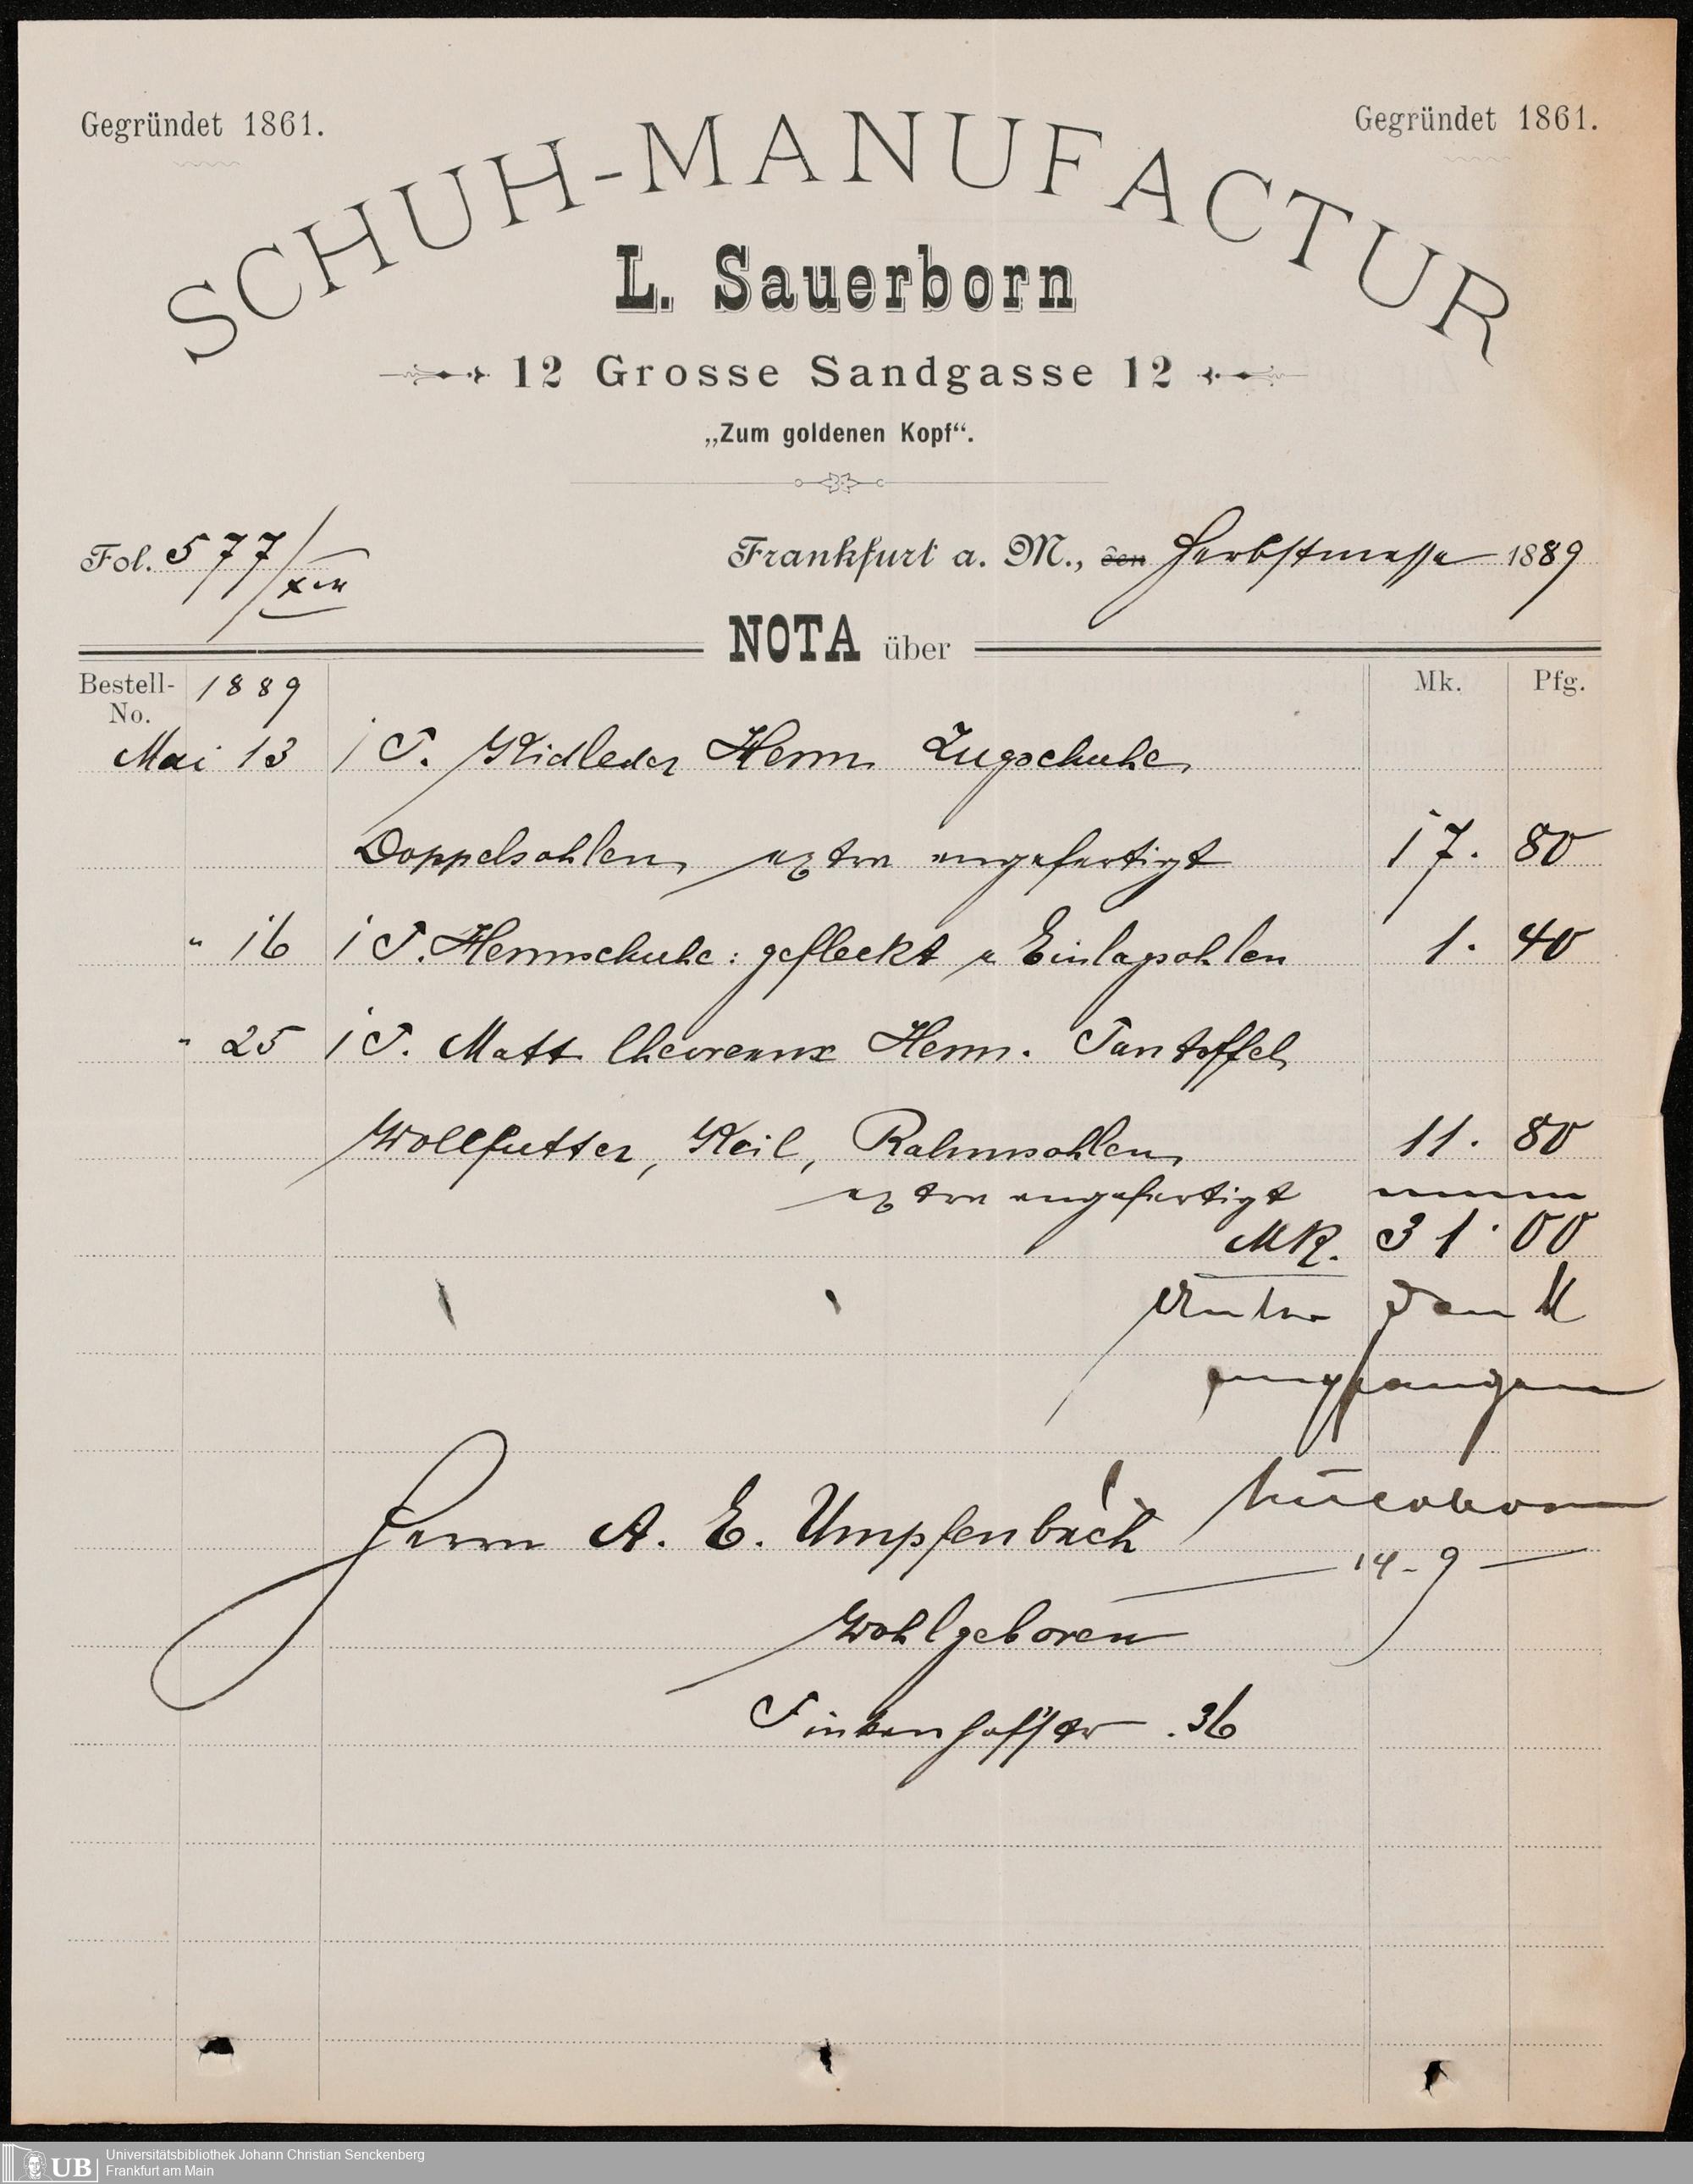 Gegründet 1861.
Gegründet 1861.
SCHUH-MANUFACTUR
L. Sauerborn
12 Grosse Sandgasse 12
„Zum goldenen Kopf“.
Fol. 577/XIII
Frankfurt a. M., den Herbstmesse 1889
NOTA über
Bestell-No. 1889 Mk. Pfg.
Mai 13 1 P. Kidleder Herrn Zugschuhe
Doppelsohlen extra angefertigt 17. 80
" 16 1 P. Herrnschuhe: gefleckt u Einlagsohlen 1. 40
" 25 1 P. Matt Chevreaux Herrn. Pantoffel
Wollfutter, Keil, Rahmsohlen 11. 80
extra angefertigt
MK. 31. 00
Unter Dank
empfangen
Sauerborn
Herrn A. E. Umpfenbach
14-9
Wohlgeboren
Finkenhofstr. 36
UB Universitätsbibliothek Johann Christian Senckenberg
Frankfurt am Main